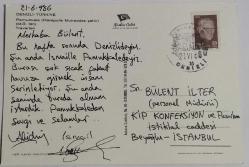 21-6-1986
DENİZLİ-TÜRKİYE
Pamukkale
Merhaba Bülent,
Bu hafta sonunda Denizlideyim.
Şu anda İsmaille Pamukkaledeyiz.
Burası çok sıcak fakat
havuza girmek insanı
serinletiyor. Şu anda
seninde burada olmanı
isterdik. Pamukkaleden
Sevgi ve selamlar...
İsmail
Sn. BÜLENT İLTER
(personel Müdürü)
KİP KONFEKSİYON ve Pazarlama
istiklal caddesi
Beyoğlu - İSTANBUL
DENİZLİ